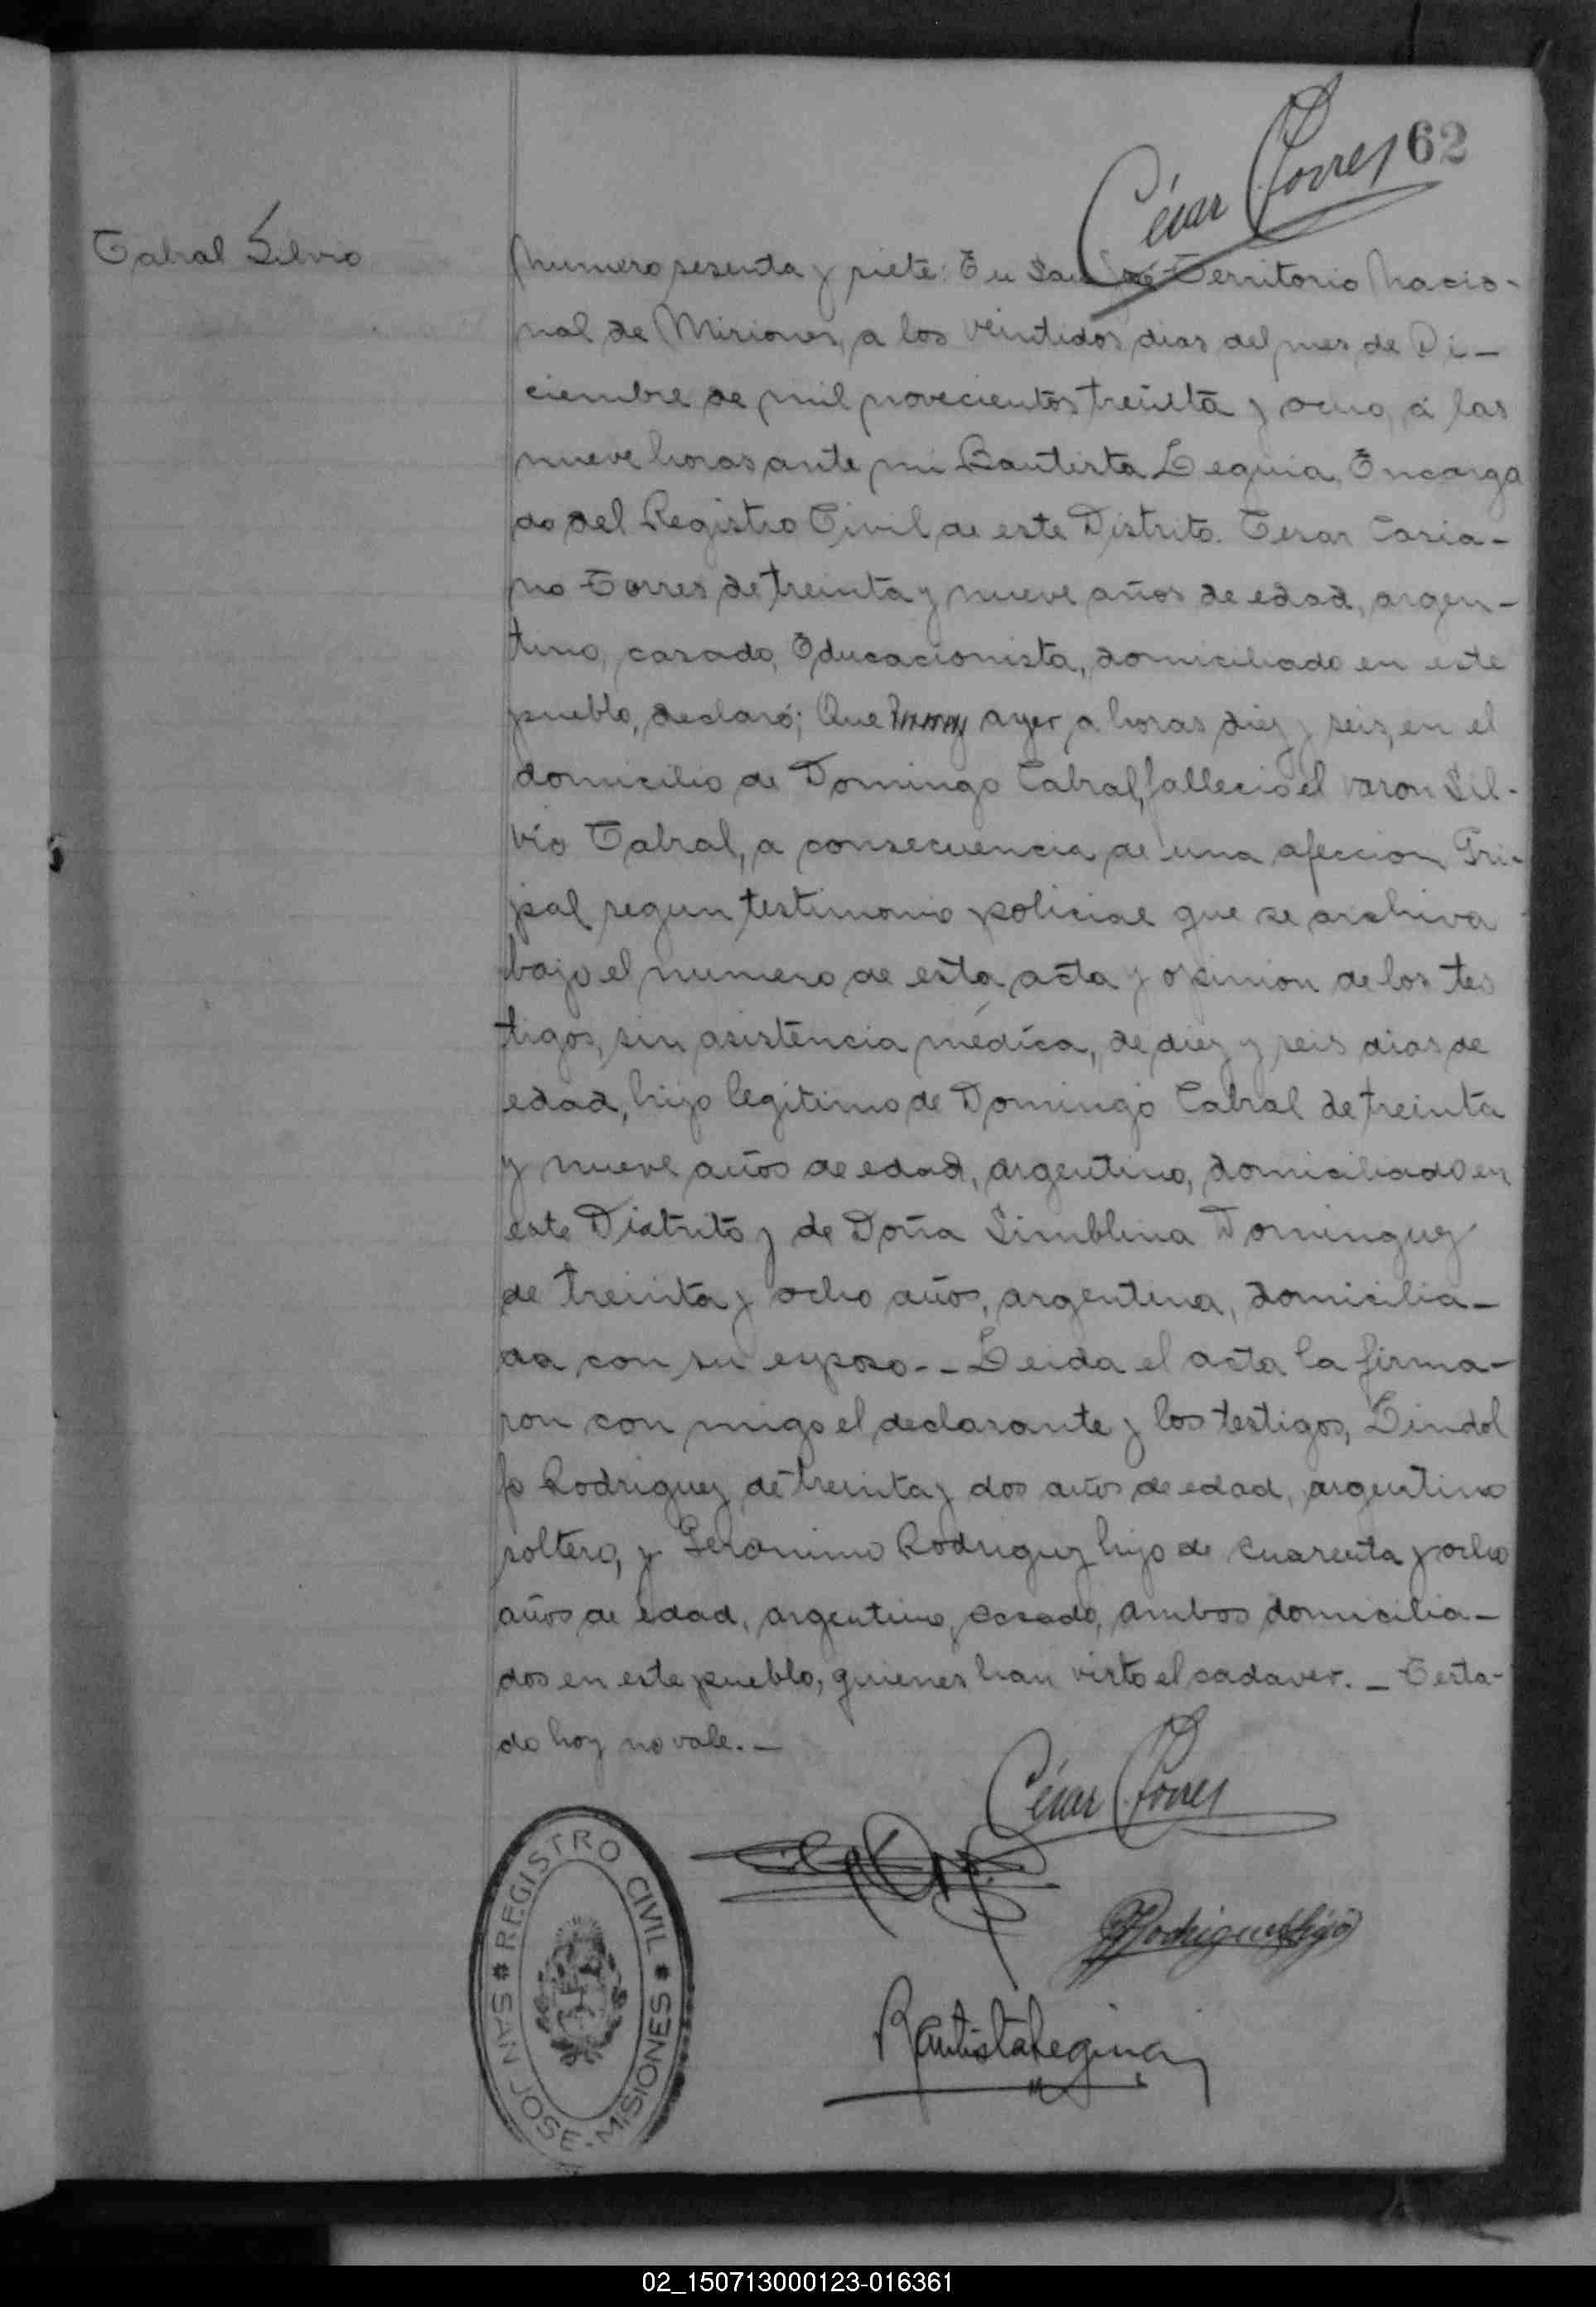 César Torres 62
Cabral Silvio
Numero sesenta y siete: En San José Territorio Nacio-
nal de Misiones, a los veintidos dias del mes de Di-
ciembre de mil novecientos treinta y ocho, á las
nueve horas ante mi Bautista Leguia, Encarga
do del Registro Civil de este Distrito. Cesar Casia-
no Torres de treinta y nueve años de edad, argen-
tino, casado, Educacionista, domiciliado en este
pueblo, declaró; Que ayer a horas diez y seis, en el
domicilio de Domingo Cabral, fallecio el varon Sil-
vio Cabral, a consecuencia de una afeccion Gri-
pal segun testimonio policial que se archiva
bajo el numero de esta acta y opinion de los tes
tigos, sin asistencia médica, de diez y seis dias de
edad, hijo legitimo de Domingo Cabral de treinta
y nueve años de edad, argentino, domiciliado en
este Distrito y de Doña Simblina Dominguez
de treinta y ocho años, argentina, domicilia-
da con su esposo.-- Leida el acta la firma-
ron con migo el declarante y los testigos, Lindol
fo Rodriguez de treinta y dos años de edad, argentino
soltero, y Geronimo Rodriguez hijo de cuarenta y ocho
años de edad, argentino, casado, ambos domicilia-
dos en este pueblo, quienes han visto el cadaver. _ Testa-
do hoy no vale. _
César Torres
Rodriguez hijo
Bautista Leguia
REGISTRO CIVIL
* SAN JOSE - MISIONES *
02_150713000123-016361